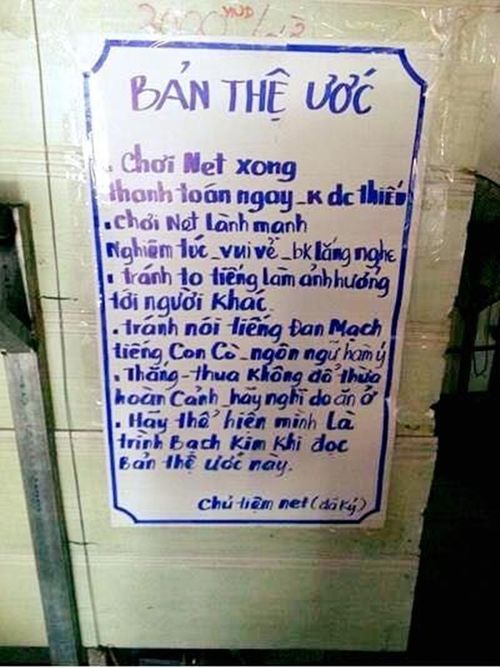 3000 VND/
BẢN THỆ ƯỚC
. Chơi Net xong
thanh toán ngay_K dc thiếu
. Chơi Net lành mạnh
Nghiêm túc_vui vẻ_bk lắng nghe
. tránh to tiếng làm ảnh hưởng
tới người Khác.
. tránh nói tiếng Đan Mạch
tiếng Con Cò_ngôn ngữ hàm ý
. Thắng-thua Không đổ thừa
hoàn Cảnh_hãy nghĩ do ăn ở
. Hãy thể hiện mình Là
trình Bạch Kim Khi đọc
Bản thệ ước này.
Chủ tiệm net (đã ký)